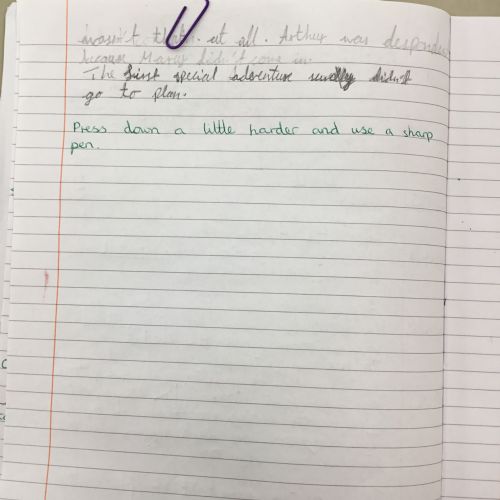 wasn't that. at all. Arthur was
because Marcy didn't come in
The first special adventure really didn't
go to plan.
Press down a little harder and use a sharp
pen.